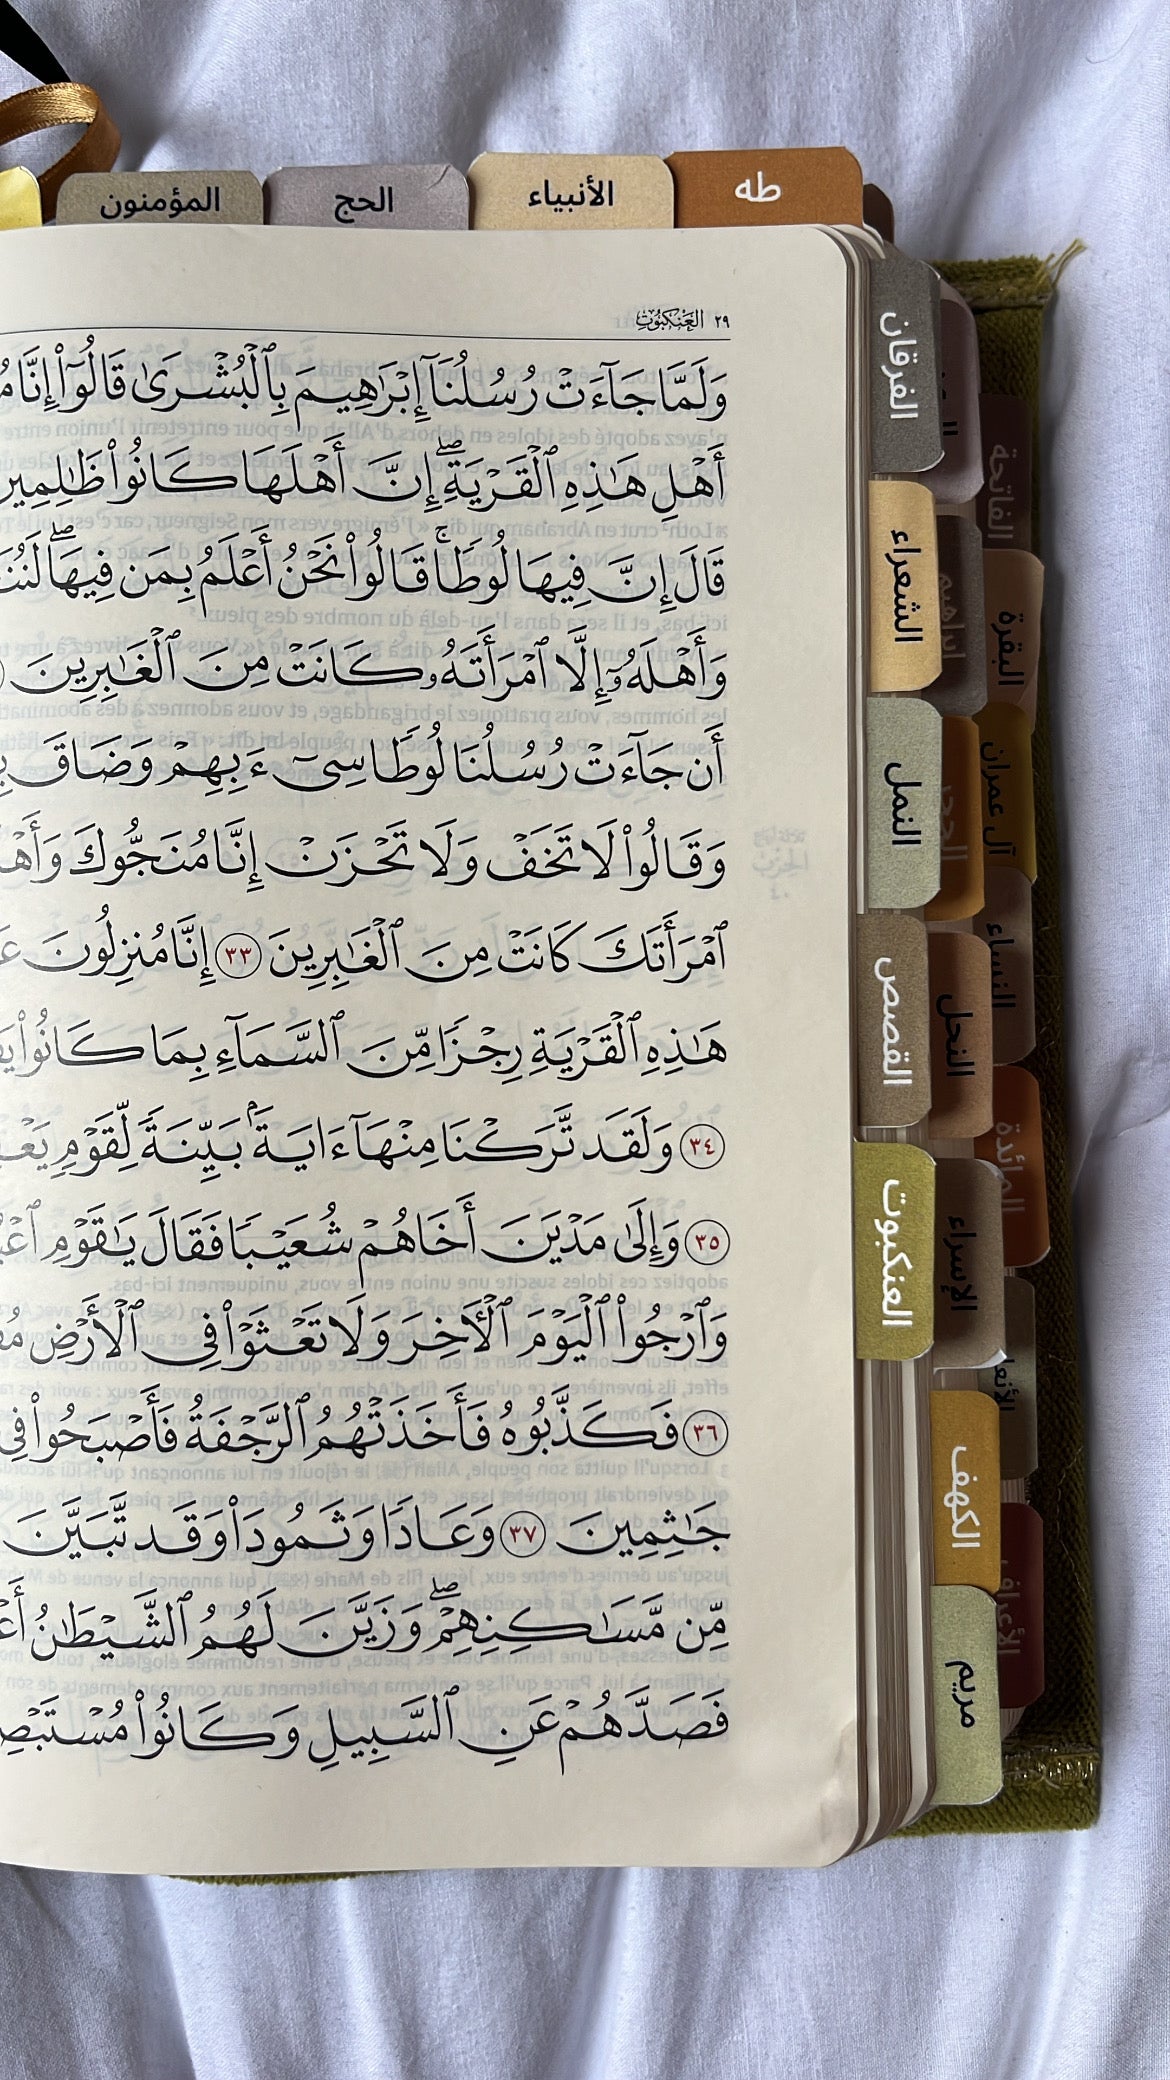 المؤمنون
الحج
الأنبياء
طه
٢٩ العَنكَبُوتِ
وَلَمَّا جَآءَتْ رُسُلُنَآ إِبْرَٰهِيمَ بِٱلْبُشْرَىٰ قَالُوٓا۟ إِنَّا
أَهْلِ هَٰذِهِ ٱلْقَرْيَةِ ۖ إِنَّ أَهْلَهَا كَانُوا۟ ظَٰلِمِين
قَالَ إِنَّ فِيهَا لُوطًا ۚ قَالُوا۟ نَحْنُ أَعْلَمُ بِمَن فِيهَا ۖ
وَأَهْلَهُۥٓ إِلَّا ٱمْرَأَتَهُۥ كَانَتْ مِنَ ٱلْغَٰبِرِينَ
أَن جَآءَتْ رُسُلُنَا لُوطًا سِىٓءَ بِهِمْ وَضَاقَ
وَقَالُوا۟ لَا تَخَفْ وَلَا تَحْزَنْ إِنَّا مُنَجُّوكَ
ٱمْرَأَتَكَ كَانَتْ مِنَ ٱلْغَٰبِرِينَ ٣٣ إِنَّا مُنزِلُونَ
هَٰذِهِ ٱلْقَرْيَةِ رِجْزًا مِّنَ ٱلسَّمَآءِ بِمَا كَانُوا۟
٣٤ وَلَقَد تَّرَكْنَا مِنْهَآ ءَايَةًۢ بَيِّنَةً لِّقَوْمٍ
٣٥ وَإِلَىٰ مَدْيَنَ أَخَاهُمْ شُعَيْبًا فَقَالَ يَٰقَوْمِ
وَٱرْجُوا۟ ٱلْيَوْمَ ٱلْأٓخِرَ وَلَا تَعْثَوْا۟ فِى ٱلْأَرْضِ
٣٦ فَكَذَّبُوهُ فَأَخَذَتْهُمُ ٱلرَّجْفَةُ فَأَصْبَحُوا۟ فِى
جَٰثِمِينَ ٣٧ وَعَادًا وَثَمُودَا۟ وَقَد تَّبَيَّنَ
مِّن مَّسَٰكِنِهِمْ ۖ وَزَيَّنَ لَهُمُ ٱلشَّيْطَٰنُ
فَصَدَّهُمْ عَنِ ٱلسَّبِيلِ وَكَانُوا۟
الفرقان
الشعراء
النمل
القصص
العنكبوت
إبراهيم
الحجر
النحل
الإسراء
الكهف
مريم
الفاتحة
البقرة
آل عمران
النساء
المائدة
الأعراف